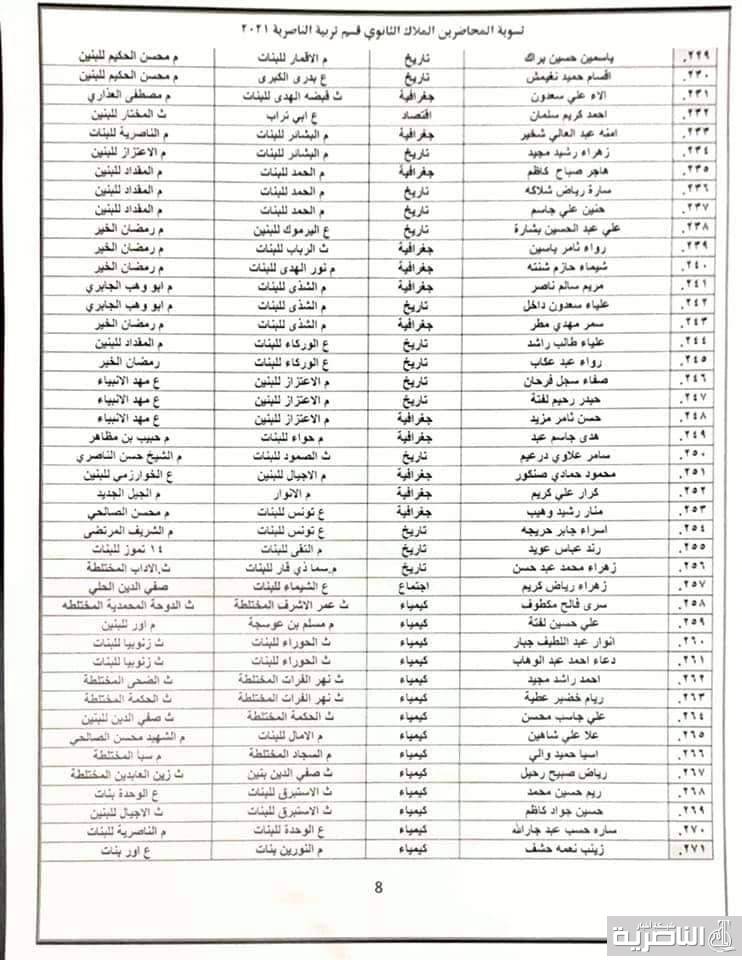 تسوية المحاضرين الملاك الثانوي قسم تربية الناصرية ٢٠٢١
٢٢٩. ياسمين حسين براك تاريخ م الاقمار للبنات م محسن الحكيم للبنين
٢٣٠. اقسام حميد نغيمش تاريخ ع بدرى الكبرى م محسن الحكيم للبنين
٢٣١. الاء علي سعدون جغرافية ث قبضه الهدى للبنات م مصطفى العذاري
٢٣٢. احمد كريم سلمان اقتصاد ع ابي تراب ث المختار للبنين
٢٣٣. امنه عبد العالي شخير جغرافية م البشائر للبنات م الناصرية للبنات
٢٣٤. زهراء رشيد مجيد تاريخ م البشائر للبنات م الاعتزاز للبنين
٢٣٥. هاجر صباح كاظم جغرافية م الحمد للبنات م المقداد للبنين
٢٣٦. سارة رياض شلاكه تاريخ م الحمد للبنات م المقداد للبنين
٢٣٧. حنين علي جاسم تاريخ م الحمد للبنات م المقداد للبنين
٢٣٨. علي عبد الحسين بشارة تاريخ ع اليرموك للبنين م رمضان الخير
٢٣٩. رواء ثامر ياسين جغرافية ث الرباب للبنات م رمضان الخير
٢٤٠. شيماء حازم شنته جغرافية م نور الهدى للبنات م رمضان الخير
٢٤١. مريم سالم ناصر جغرافية م الشذى للبنات م ابو وهب الجابري
٢٤٢. علياء سعدون داخل تاريخ م الشذى للبنات م ابو وهب الجابري
٢٤٣. سمر مهدي مطر جغرافية م الشذى للبنات م رمضان الخير
٢٤٤. علياء طالب راشد تاريخ ع الوركاء للبنات م المقداد للبنين
٢٤٥. رواء عبد عكاب تاريخ ع الوركاء للبنات رمضان الخير
٢٤٦. صفاء سجل فرحان تاريخ م الاعتزاز للبنين ع مهد الانبياء
٢٤٧. حيدر رحيم لفتة تاريخ م الاعتزاز للبنين ع مهد الانبياء
٢٤٨. حسن ثامر مزيد جغرافية م الاعتزاز للبنين ع مهد الانبياء
٢٤٩. هدى جاسم عبد جغرافية م حواء للبنات م حبيب بن مظاهر
٢٥٠. سامر علاوي درعيم تاريخ ث الصمود للبنات م الشيخ حسن الناصري
٢٥١. محمود حمادي صنكور جغرافية م الاجيال للبنين ع الخوارزمي للبنين
٢٥٢. كرار علي كريم جغرافية م الانوار م الجيل الجديد
٢٥٣. منار رشيد وهيب جغرافية ع تونس للبنات م محسن الصالحي
٢٥٤. اسراء جابر حريجه تاريخ ع تونس للبنات م الشريف المرتضى
٢٥٥. رند عباس عويد تاريخ م التقى للبنات ١٤ تموز للبنات
٢٥٦. زهراء محمد عبد حسن تاريخ م.سما ذي قار للبنات ث.الاداب المختلطة
٢٥٧. زهراء رياض كريم اجتماع ع الشيماء للبنات صفي الدين الحلي
٢٥٨. سرى فالح مكطوف كيمياء ث عمر الاشرف المختلطة ث الدوحة المحمدية المختلطه
٢٥٩. علي حسين لفتة كيمياء م مسلم بن عوسجة م اور للبنين
٢٦٠. انوار عبد اللطيف جبار كيمياء ث الحوراء للبنات ث زنوبيا للبنات
٢٦١. دعاء احمد عبد الوهاب كيمياء ث الحوراء للبنات ث زنوبيا للبنات
٢٦٢. احمد راشد مجيد كيمياء ث نهر الفرات المختلطة ث الضحى المختلطة
٢٦٣. ريام خضير عطية كيمياء ث نهر الفرات المختلطة ث الحكمة المختلطة
٢٦٤. علي جاسب محسن كيمياء ث الحكمة المختلطة ث صفي الدين للبنين
٢٦٥. علا علي شاهين كيمياء م الامال للبنات م الشهيد محسن الصالحي
٢٦٦. اسيا حميد والي كيمياء م السجاد المختلطة م سبأ المختلطة
٢٦٧. رياض صبيح رحيل كيمياء ث صفي الدين بنين ث زين العابدين المختلطة
٢٦٨. ريم حسين محمد كيمياء ث الاستبرق للبنات ع الوحدة بنات
٢٦٩. حسين جواد كاظم كيمياء ث الاستبرق للبنات ث الاجيال للبنين
٢٧٠. ساره حسب عبد جارالله كيمياء ع الوحدة للبنات م الناصرية للبنات
٢٧١. زينب نعمه حشف كيمياء م النورين بنات ع اور بنات
8
شبكة اخبار
الناصرية